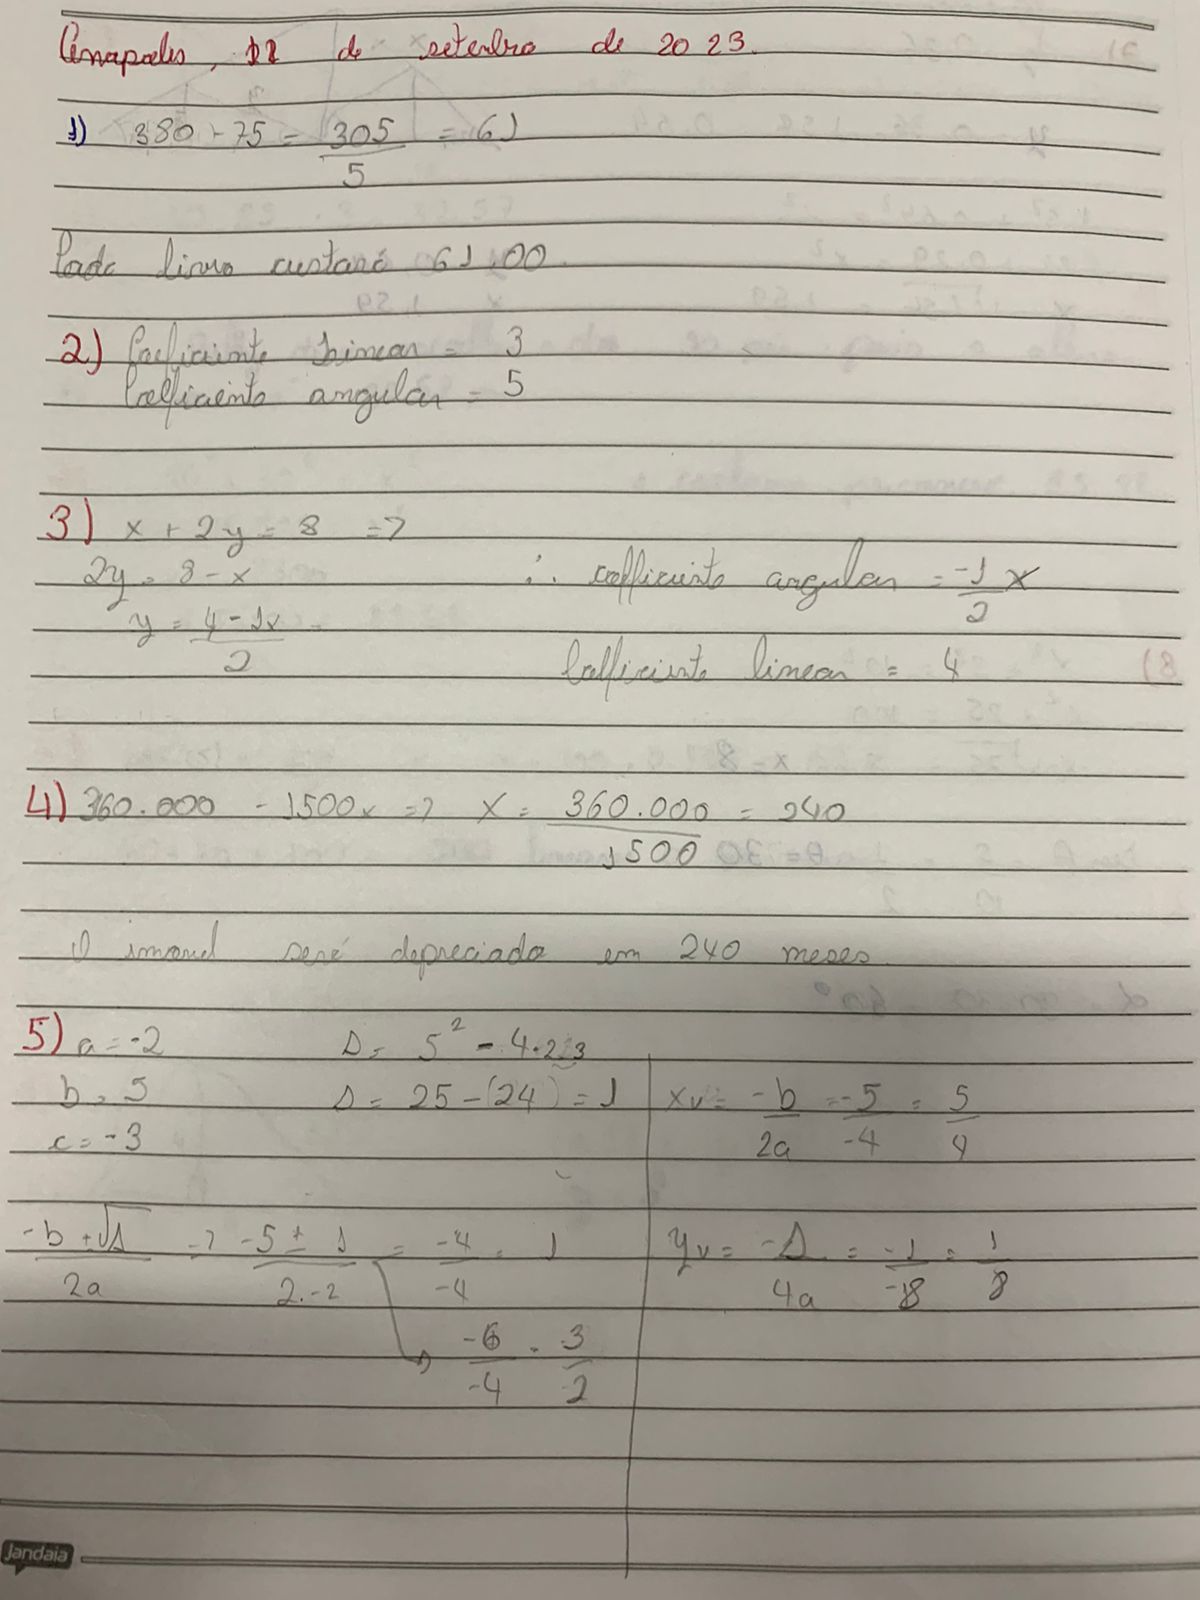 Anapoles, 12 de setembro de 2023.
1) 380 - 75 = 305/5 = 61
Cada livro custará 61,00
2) Coeficiente Linear = 3
Coeficiente angular = 5
3) x + 2y = 8 =>
2y = 8 - x
∴ coefficiente angular = -1/2 x
y = 4 - 1x/2
Coefficiente linear = 4
4) 360.000 - 1500x => x = 360.000/1500 = 240
O imovel será depreciado em 240 meses
5) a = -2
Δ = 5² - 4.2.3
b = 5
Δ = 25 - (24) = 1
xv = -b/2a = -5/-4 = 5/4
c = -3
-b ± √Δ/2a => -5 ± 1/2.-2 = -4/-4 = 1
yv = -Δ/4a = -1/-8 = 1/8
-6/-4 = 3/2
Jandaia